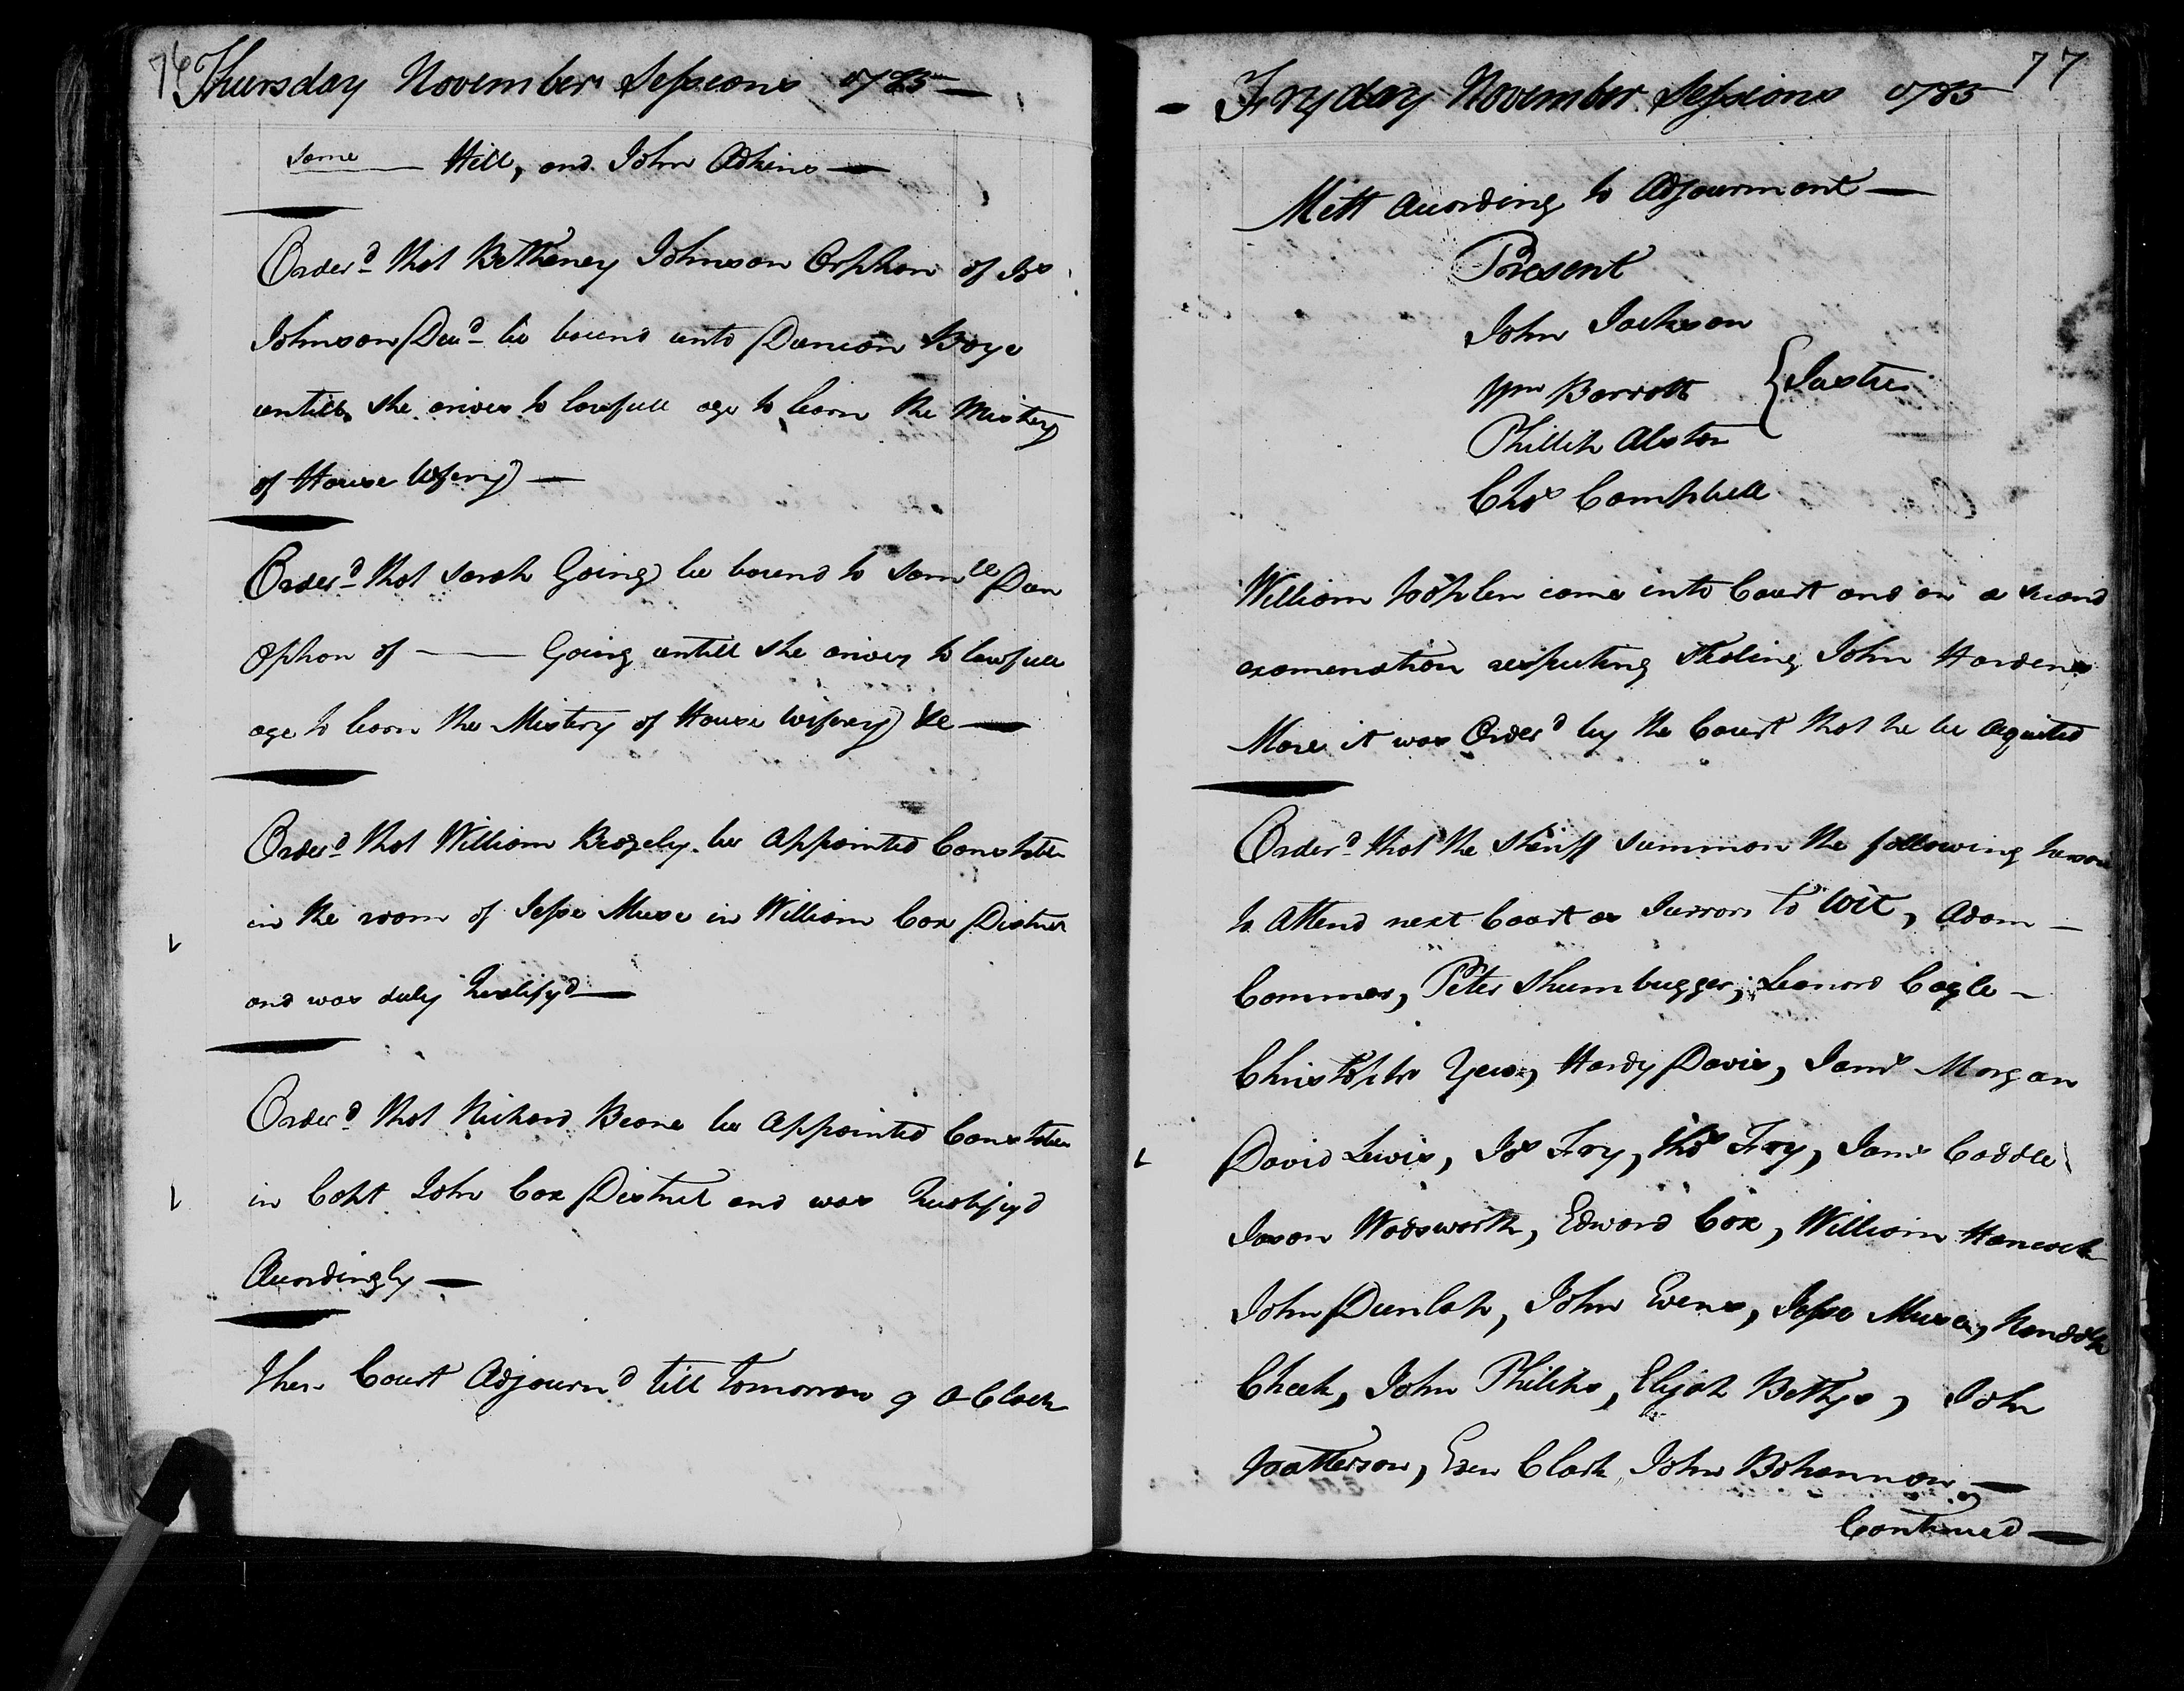 76 Thursday November Sessions 1785
same Hill, and John Adkins
Order'd that Betheney Johnson Orphan of Jos
Johnson Dec'd be bound unto Duncan Boye
untill she arives to lawfull age to learn the Mistery
of House Wifery
Order'd that Sarah Going be bound to Samll Dun
Ophan of Going untill she arives to lawfull
age to learn the Mistery of House Wifery &c
Order'd that William Bedgely be Appointed Constable
in the room of Jesse Muse in William Cox District
and was duly Quallify'd
Order'd that Richard Beane be Appointed Constable
in Capt John Cox District and was Quallify'd
Accordingly
Then Court Adjourn'd till tomorrow 9 O Clock
Fryday November Sessions 1785 77
Mett According to Adjourment
Present
John Jackson
Wm Barrott } Justies
Phillip Alston
Chs Campbell
William came into Court and on a second
examenation respecting Steling John Hardens
Mare it was Order'd by the Court that he be Aquited
Order'd that the Sheriff summon the following persons
to Attend next Court as Jurrors to Wit, Adam
Commer, Peter Shumbugger, Leanord Cagle
Christopher Yew, Hardy Davis, Jams Morgan
David Lewis, Jos Fry, Thos Fry, Jams Caddle
Jason Wadsworth, Edward Cox, William Hancock
John Dunlap, John Evens, Jesse Muse, Randolh
Cheek, John Philips, Elijah Bettys, John
Patterson, John Bohannon
Continued